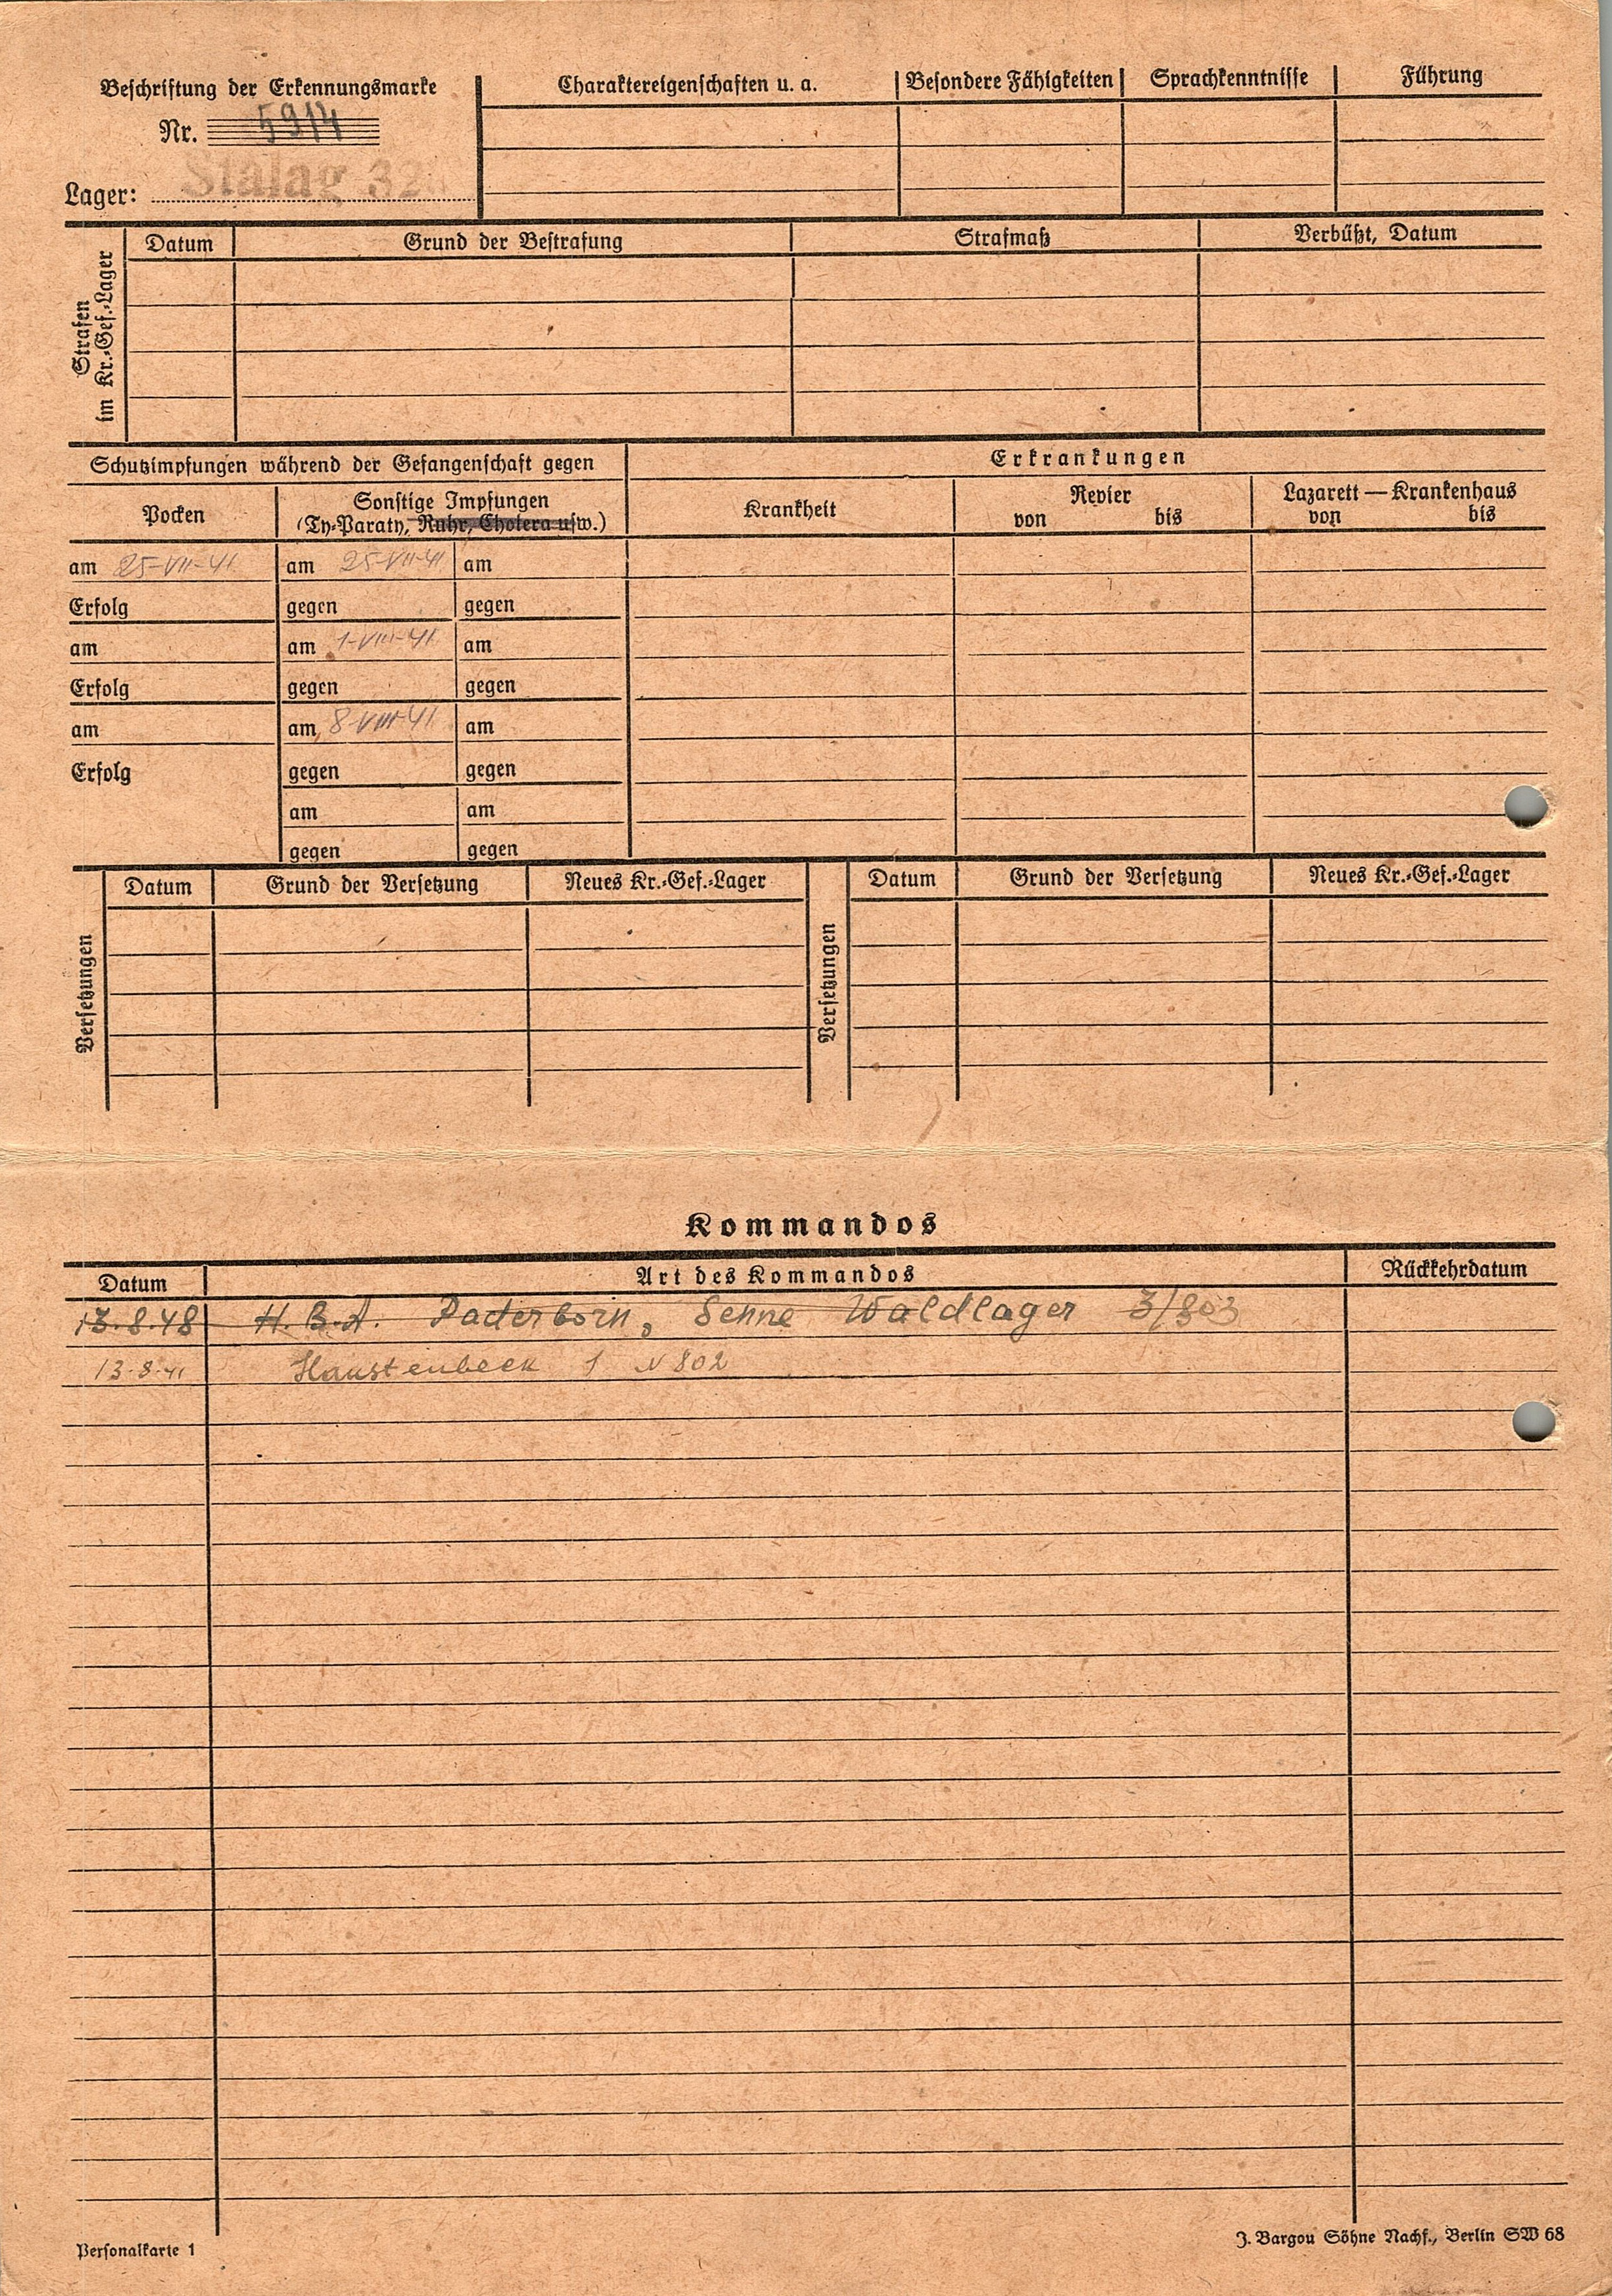 Beschriftung der Erkennungsmarke
Nr. 5914
Lager: Stalag 32
Charaktereigenschaften u. a.
Besondere Fähigkeiten
Sprachkenntnisse
Führung
Strafen im Kr.-Gef.-Lager
Datum
Grund der Bestrafung
Strafmaß
Verbüßt, Datum
Schutzimpfungen während der Gefangenschaft gegen
Erkrankungen
Pocken
Sonstige Impfungen
(Ty-Paraty, Ruhr, Cholera usw.)
Krankheit
Revier
von bis
Lazarett — Krankenhaus
von bis
am 25-VII-41 am 25-VII-41 am
Erfolg gegen gegen
am am 1-VIII-41 am
Erfolg gegen gegen
am am 8-VIII-41 am
Erfolg gegen gegen
am am
gegen gegen
Versetzungen
Datum Grund der Versetzung Neues Kr.-Gef.-Lager
Versetzungen
Datum Grund der Versetzung Neues Kr.-Gef.-Lager
Kommandos
Datum Art des Kommandos Rückkehrdatum
13.8.48 H. B. A. Paderborn, Senne Waldlager 3/803
13.8.41 Haustenbeck 1 N 802
Personalkarte 1
J. Bargou Söhne Nachf., Berlin SW 68